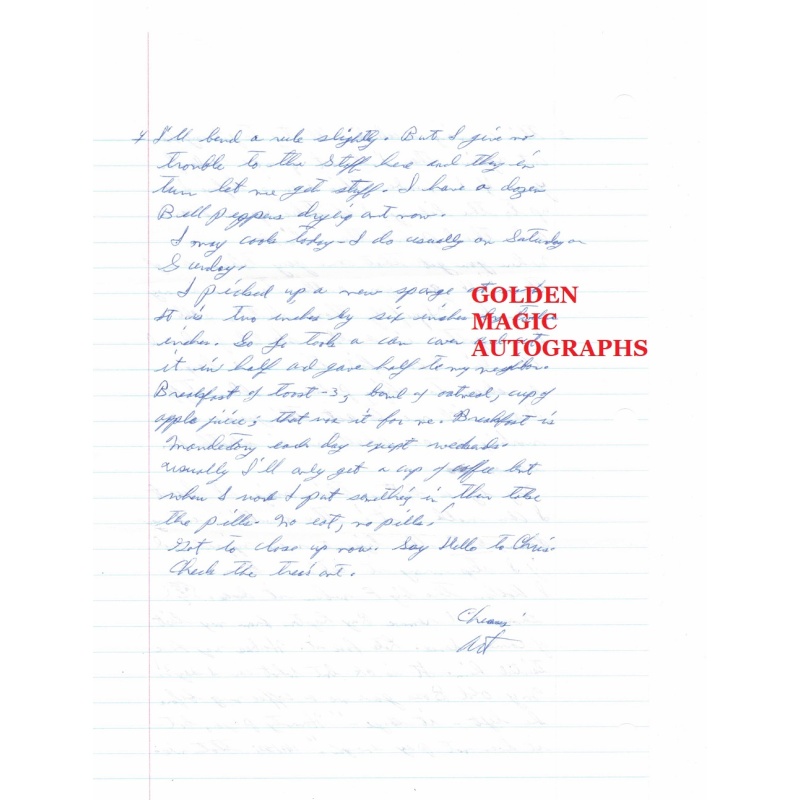 4 I'll bend a rule slightly. But I give no
trouble to the Staff here and they in
turn let me get stuff. I have a dozen
Bell Peppers drying out now.
I may cook today - I do usually on Saturday or
Sunday.
I picked up a new sponge
It is two inches by six inches
inches. So I took a can cover
it in half ad gave half to my neighbor.
Breakfast of toast - 3, bowl of oatmeal, cup of
apple juice; that was it for me. Breakfast is
Mandetory each day except weekends.
usually I'll only get a cup of coffee but
when I work I put something in then take
the pills. No eat, no pills!
Got to close up now. Say Hello to Chris.
Check the trees out.
Cheers
Art
GOLDEN
MAGIC
AUTOGRAPHS